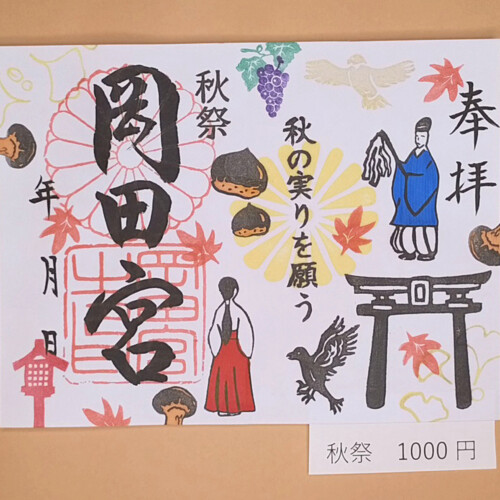 奉拝
秋の実りを願う
秋祭
岡田宮
年 月 日
秋祭 1000円